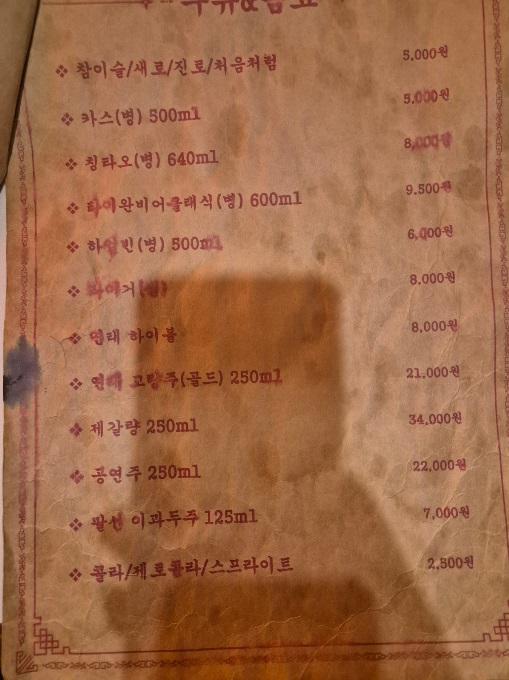 주류&음료
❖ 참이슬/새로/진로/처음처럼 5,000원
❖ 카스(병) 500ml 5,000원
❖ 칭따오(병) 640ml 8,000원
❖ 타이완비어클래식(병) 600ml 9,500원
❖ 하얼빈(병) 500ml 6,000원
❖ 타이거(병) 8,000원
❖ 연태 하이볼 8,000원
❖ 연태 고량주(골드) 250ml 21,000원
❖ 제갈량 250ml 34,000원
❖ 공연주 250ml 22,000원
❖ 팔선 이과두주 125ml 7,000원
❖ 콜라/제로콜라/스프라이트 2,500원